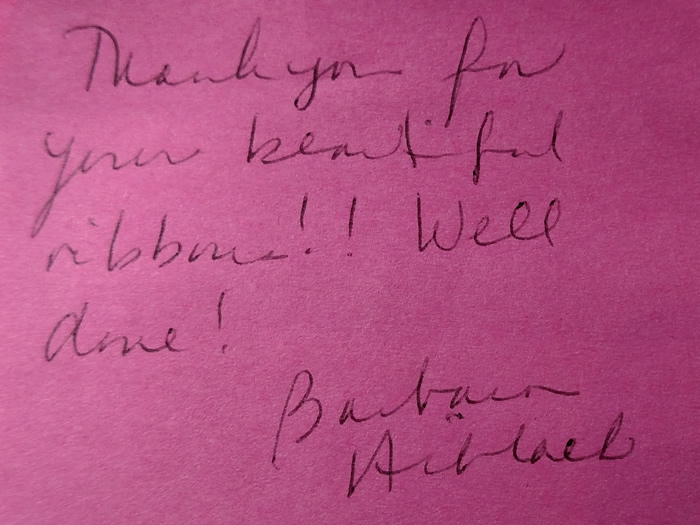 Thank you for
your beautiful
ribbons!! Well
done!
Barbara